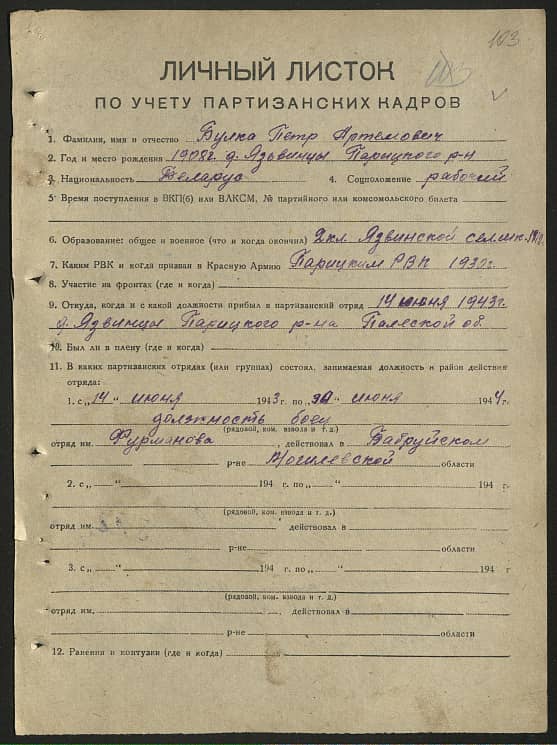 103
103
ЛИЧНЫЙ ЛИСТОК
ПО УЧЕТУ ПАРТИЗАНСКИХ КАДРОВ
1. Фамилия, имя и отчество Булка Петр Артемович
2. Год и место рождения 1908г. д. Язвинцы Парицкого р-н
3. Национальность Беларус 4. Соцположение рабочий
5. Время поступления в ВКП(б) или ВЛКСМ, № партийного или комсомольского билета
6. Образование: общее и военное (что и когда окончил) 2кл. Язвинской сел.шк.
7. Каким РВК и когда призван в Красную Армию Парицким РВК 1930г.
8. Участие на фронтах (где и когда)
9. Откуда, когда и с какой должности прибыл в партизанский отряд 14 июня 1943г.
д. Язвинцы Парицкого р-на Палеской об.
10. Был ли в плену (где и когда)
11. В каких партизанских отрядах (или группах) состоял, занимаемая должность и район действия
отряда:
1. с „14“ июня 1943 г. по „30“ июня 1944 г.
должность боец
(рядовой, ком. взвода и т. д.)
отряд им. Фурманова, действовал в Бабруйском
р-не Могилевской области
2. с „ “ 194 г. по „ “ 194 г.
(рядовой, ком. взвода и т. д.)
отряд им. , действовал в
р-не области
3. с „ “ 194 г. по „ “ 194 г
(рядовой, ком. взвода и т. д.)
отряд им. , действовал в
р-не области
12. Ранения и контузки (где и когда)